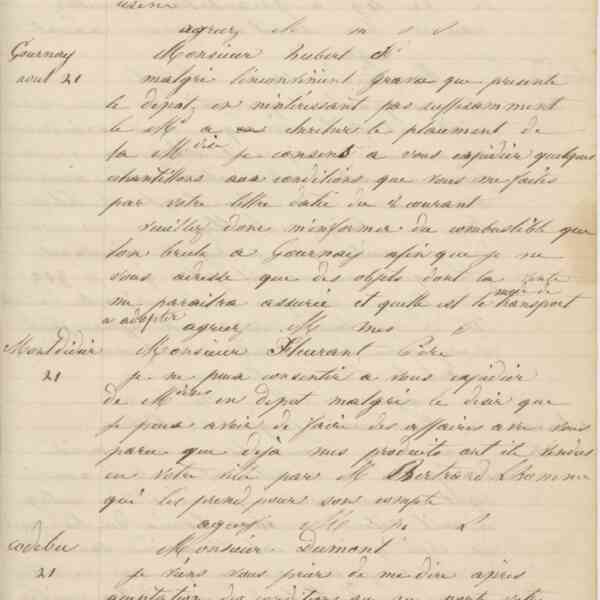 usine
agréez M m s s
Gournay Monsieur hubert fs
aout 21 malgré linconvénient grave que presente
le dépôt, en nintéressant pas suffisamment
le Md a chercher le placement de
la Mdise je consens a vous expédier quelques
échantillons aux conditions que vous me faites
par votre lettre datée du 2 courant
veuillez donc m'informer du combustible que
lon brule a Gournay afin que je ne
vous adresse que des objets dont la vente
me paraitra assurée et quelle est le moyen de transport
a adopter agreez M mes s
Montdidier Monsieur Fleurant Père
21 je ne puis consentir a vous expédier
de Mdises en depot malgré le désir que
je puis avoir de faire des affaires avec vous
parce que déjà mes produits ont été vendus
en votre ville par M Bertrand Lhomme
qui les prend pour son compte
agreez M s
codebec Monsieur Dumont
21 je viens vous prier de me dire après
acceptation des conditions votre